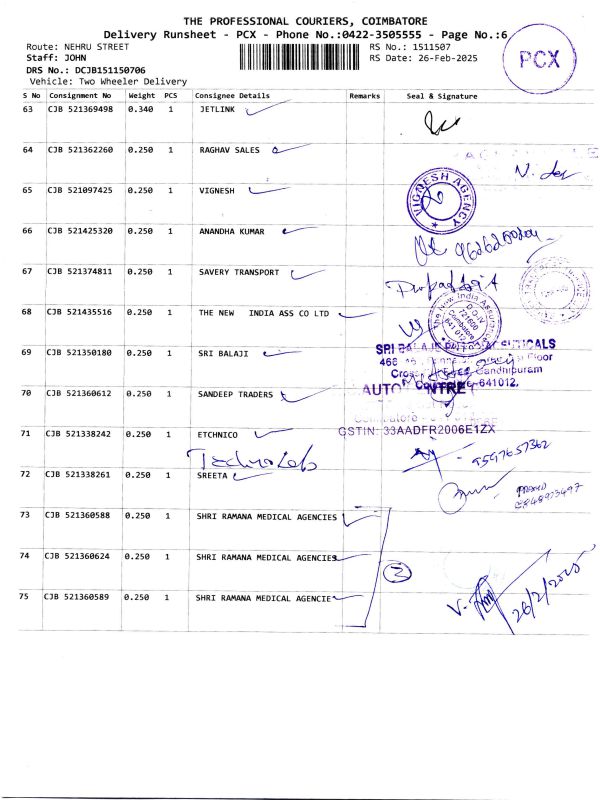 THE PROFESSIONAL COURIERS, COIMBATORE
Delivery Runsheet - PCX - Phone No.:0422-3505555 - Page No.:6
Route: NEHRU STREET RS No.: 1511507
Staff: JOHN RS Date: 26-Feb-2025
DRS No.: DCJB151150706
Vehicle: Two Wheeler Delivery
PCX
S No Consignment No Weight PCS Consignee Details Remarks Seal & Signature
63 CJB 521369498 0.340 1 JETLINK
64 CJB 521362260 0.250 1 RAGHAV SALES
65 CJB 521097425 0.250 1 VIGNESH
VIGNESH AGENCY
66 CJB 521425320 0.250 1 ANANDHA KUMAR
67 CJB 521374811 0.250 1 SAVERY TRANSPORT
68 CJB 521435516 0.250 1 THE NEW INDIA ASS CO LTD
The New India Assurance
69 CJB 521350180 0.250 1 SRI BALAJI
Floor
Gandhipuram
641012.
70 CJB 521360612 0.250 1 SANDEEP TRADERS
AUTO
71 CJB 521338242 0.250 1 ETCHNICO
GSTIN: 33AADFR2006E1ZX
Techno Lab
9597657362
72 CJB 521338261 0.250 1 SREETA
73 CJB 521360588 0.250 1 SHRI RAMANA MEDICAL AGENCIES
74 CJB 521360624 0.250 1 SHRI RAMANA MEDICAL AGENCIES
75 CJB 521360589 0.250 1 SHRI RAMANA MEDICAL AGENCIE
26/2/2025